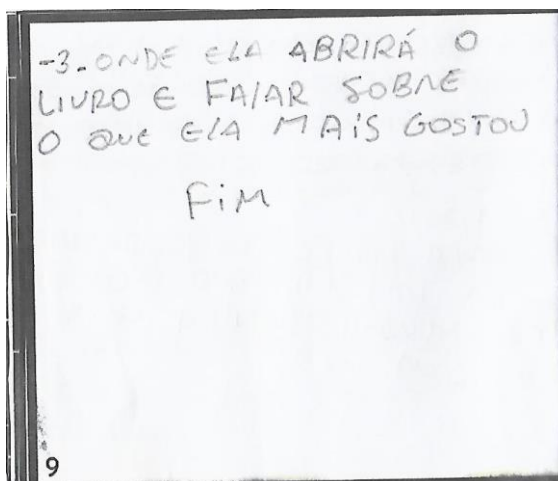 -3. ONDE ELA ABRIRÁ O
LIVRO E FALAR SOBRE
O QUE ELA MAIS GOSTOU
FIM
9